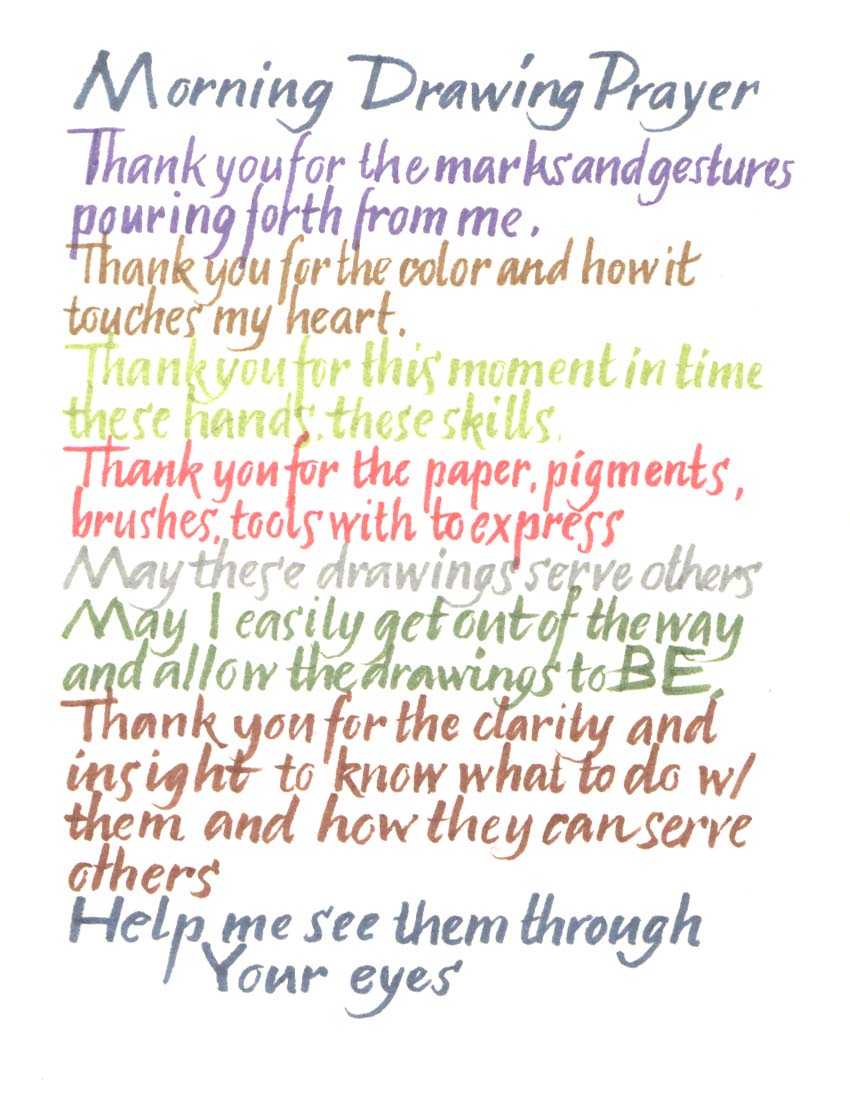 Morning Drawing Prayer
Thank you for the marks and gestures
pouring forth from me.
Thank you for the color and how it
touches my heart.
Thank you for this moment in time
these hands, these skills.
Thank you for the paper, pigments,
brushes, tools with to express
May these drawings serve others
May I easily get out of the way
and allow the drawings to BE.
Thank you for the clarity and
insight to know what to do w/
them and how they can serve
others
Help me see them through
Your eyes